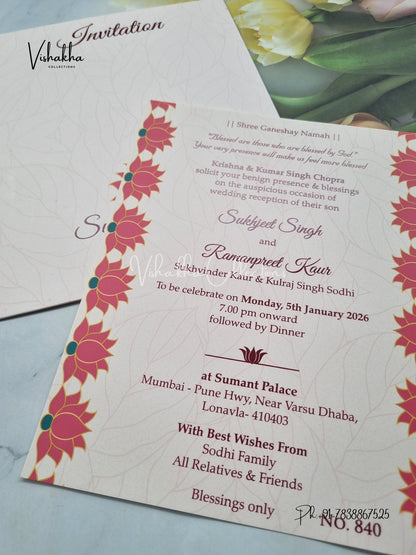 Invitation
Vishakha
COLLECTIONS
|| Shree Ganeshay Namah ||
"Blessed are those who are blessed by God."
Your very presence will make us feel more blessed
Krishna & Kumar Singh Chopra
solicit your benign presence & blessings
on the auspicious occasion of
wedding reception of their son
Sukhjeet Singh
and
Ramanpreet Kaur
Vishakha Collections
Sukhvinder Kaur & Kulraj Singh Sodhi
To be celebrate on Monday, 5th January 2026
7.00 pm onward
followed by Dinner
at Sumant Palace
Mumbai - Pune Hwy, Near Varsu Dhaba,
Lonavla- 410403
With Best Wishes From
Sodhi Family
All Relatives & Friends
Blessings only
NO. 840
Ph 91-7838867525